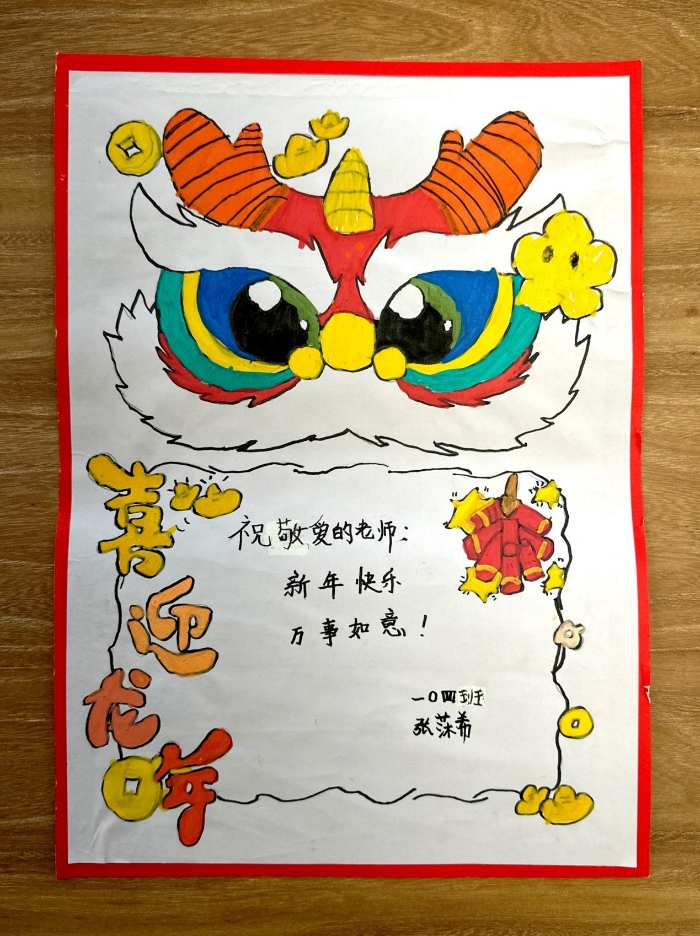 喜迎龙年
祝敬爱的老师：
新年快乐
万事如意！
一0四班
张菾希